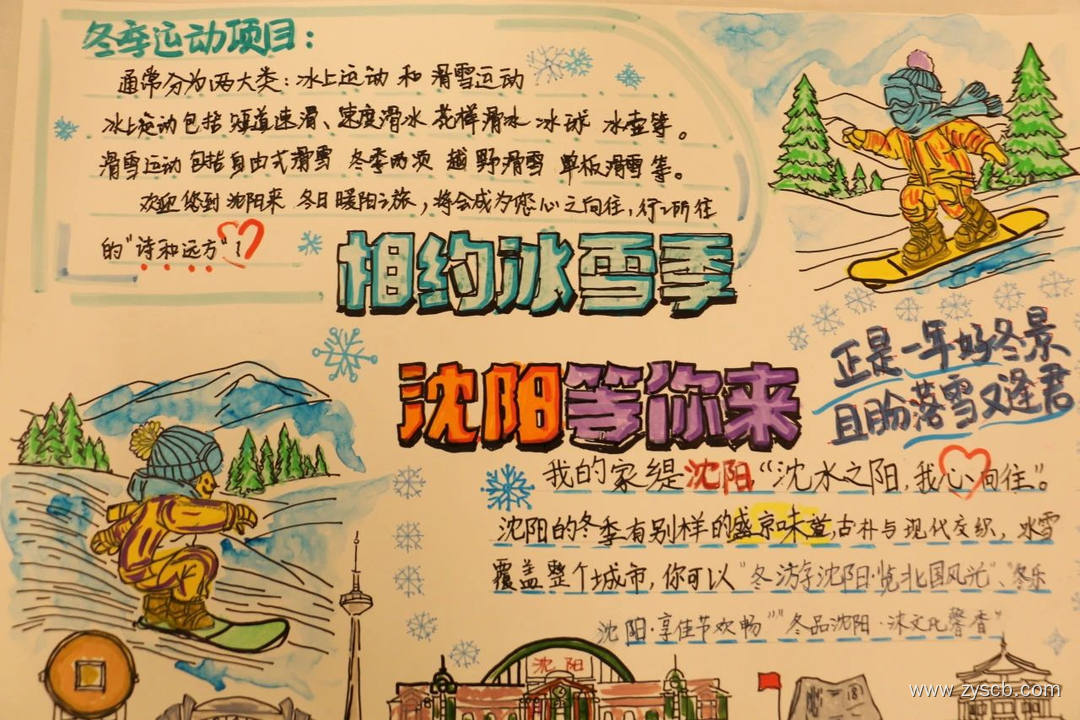 冬季运动项目:
通常分为两大类:冰上运动和滑雪运动
冰上运动包括短道速滑、速度滑冰 花样滑冰 冰球 冰壶等。
滑雪运动包括自由式滑雪 冬季两项 越野滑雪 单板滑雪等。
欢迎您到沈阳来 冬日暖阳之旅,将会成为您心之向往,行之所往
的"诗和远方"!
相约冰雪季
沈阳等你来
正是一年好冬景
且盼落雪又逢君
我的家缇沈阳,"沈水之阳,我心向往"。
沈阳的冬季有别样的盛京味道,古朴与现代交织,冰雪
覆盖整个城市,你可以"冬游沈阳·览北国风光"、"冬乐
沈阳·享佳节欢畅""冬品沈阳·沐文化馨香"
沈阳
www.zyscb.com